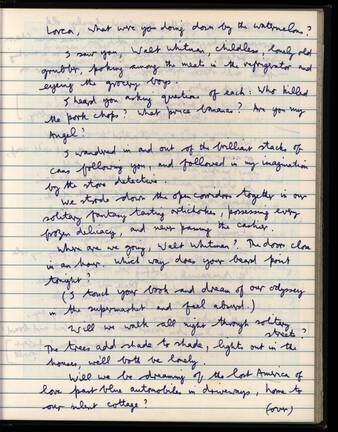 Lorca, what were you doing down by the watermelons?
I saw you, Walt Whitman, childless, lonely old
grubber, poking among the meats in the refrigerator and
eyeing the grocery boys.
I heard you asking questions of each: Who killed
the pork chops? What price bananas? Are you my
Angel?
I wandered in and out of the brilliant stacks of
cans following you, and followed in my imagination
by the store detective.
We strode down the open corridors together in our
solitary fancy tasting artichokes, possessing every
frozen delicacy, and never passing the cashier.
Where are we going, Walt Whitman? The doors close
in an hour. Which way does your beard point
tonight?
(I touch your book and dream of our odyssey
in the supermarket and feel absurd.)
Will we walk all night through solitary
streets?
The trees add shade to shade, lights out in the
houses, we'll both be lonely.
Will we be dreaming of the lost America of
love past blue automobiles in driveways, home to
our silent cottage?
(over)